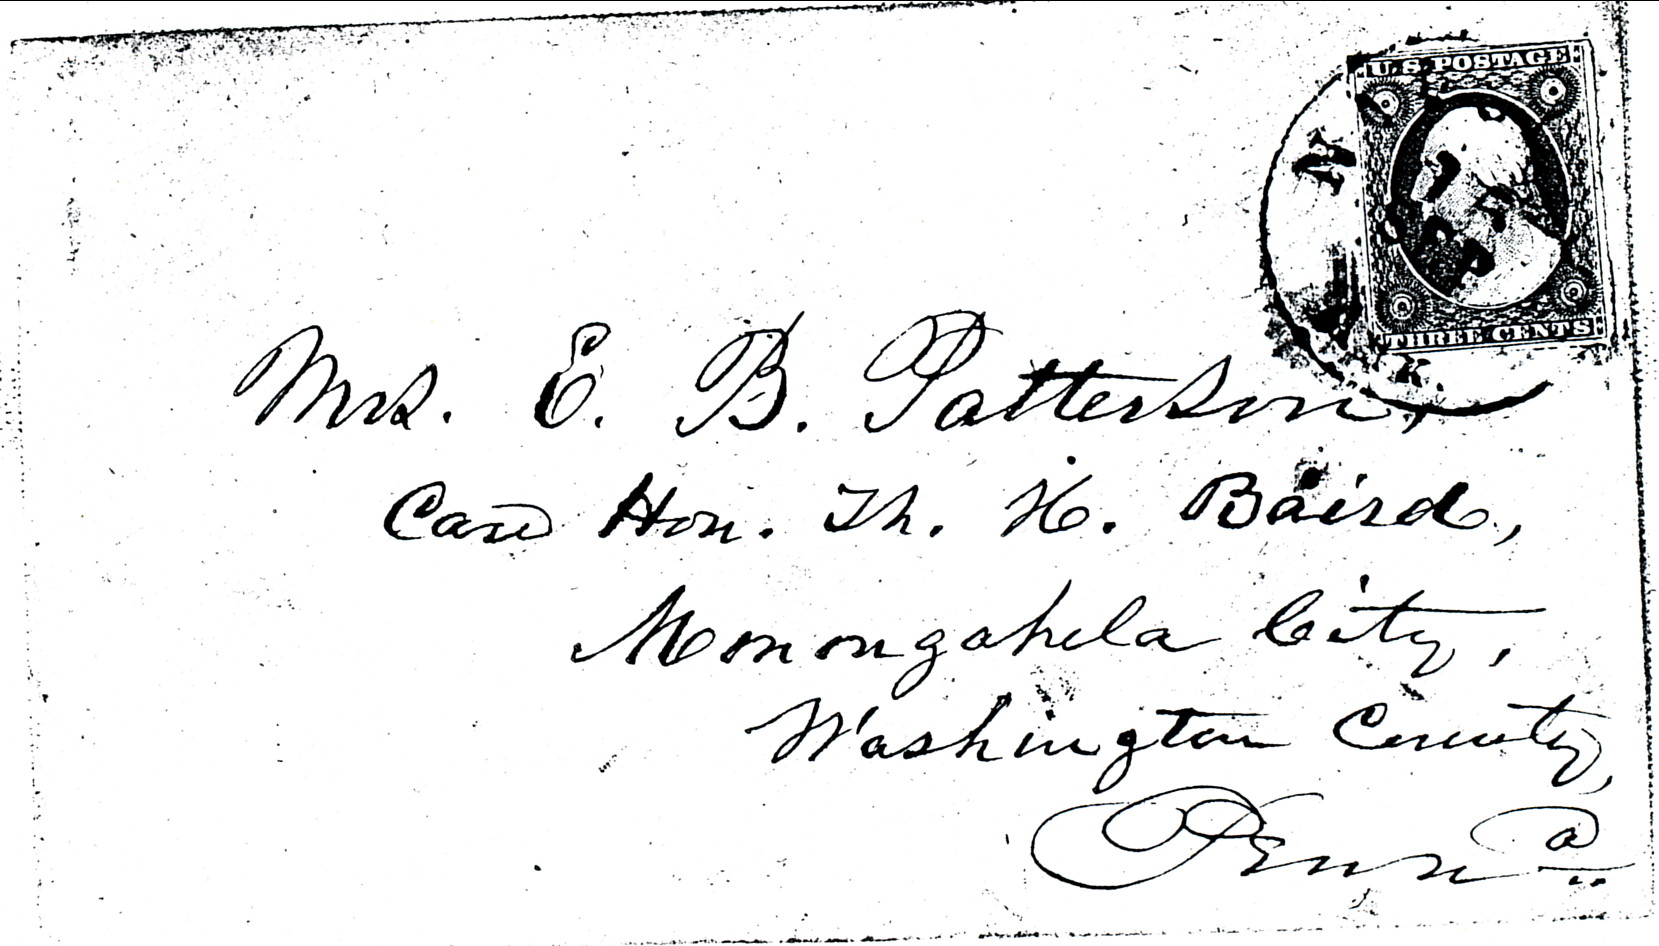 U.S. POSTAGE
N
SEP
THREE CENTS
K.
Mrs. E. B. Patterson,
Care Hon. Th. H. Baird,
Monongahela City,
Washington County,
Penna